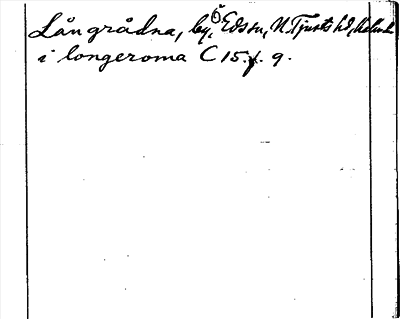 Långrådna, by, Ö Edssn, N. Tjusts hd, Kalmar
i longeroma C 15 f. 9.